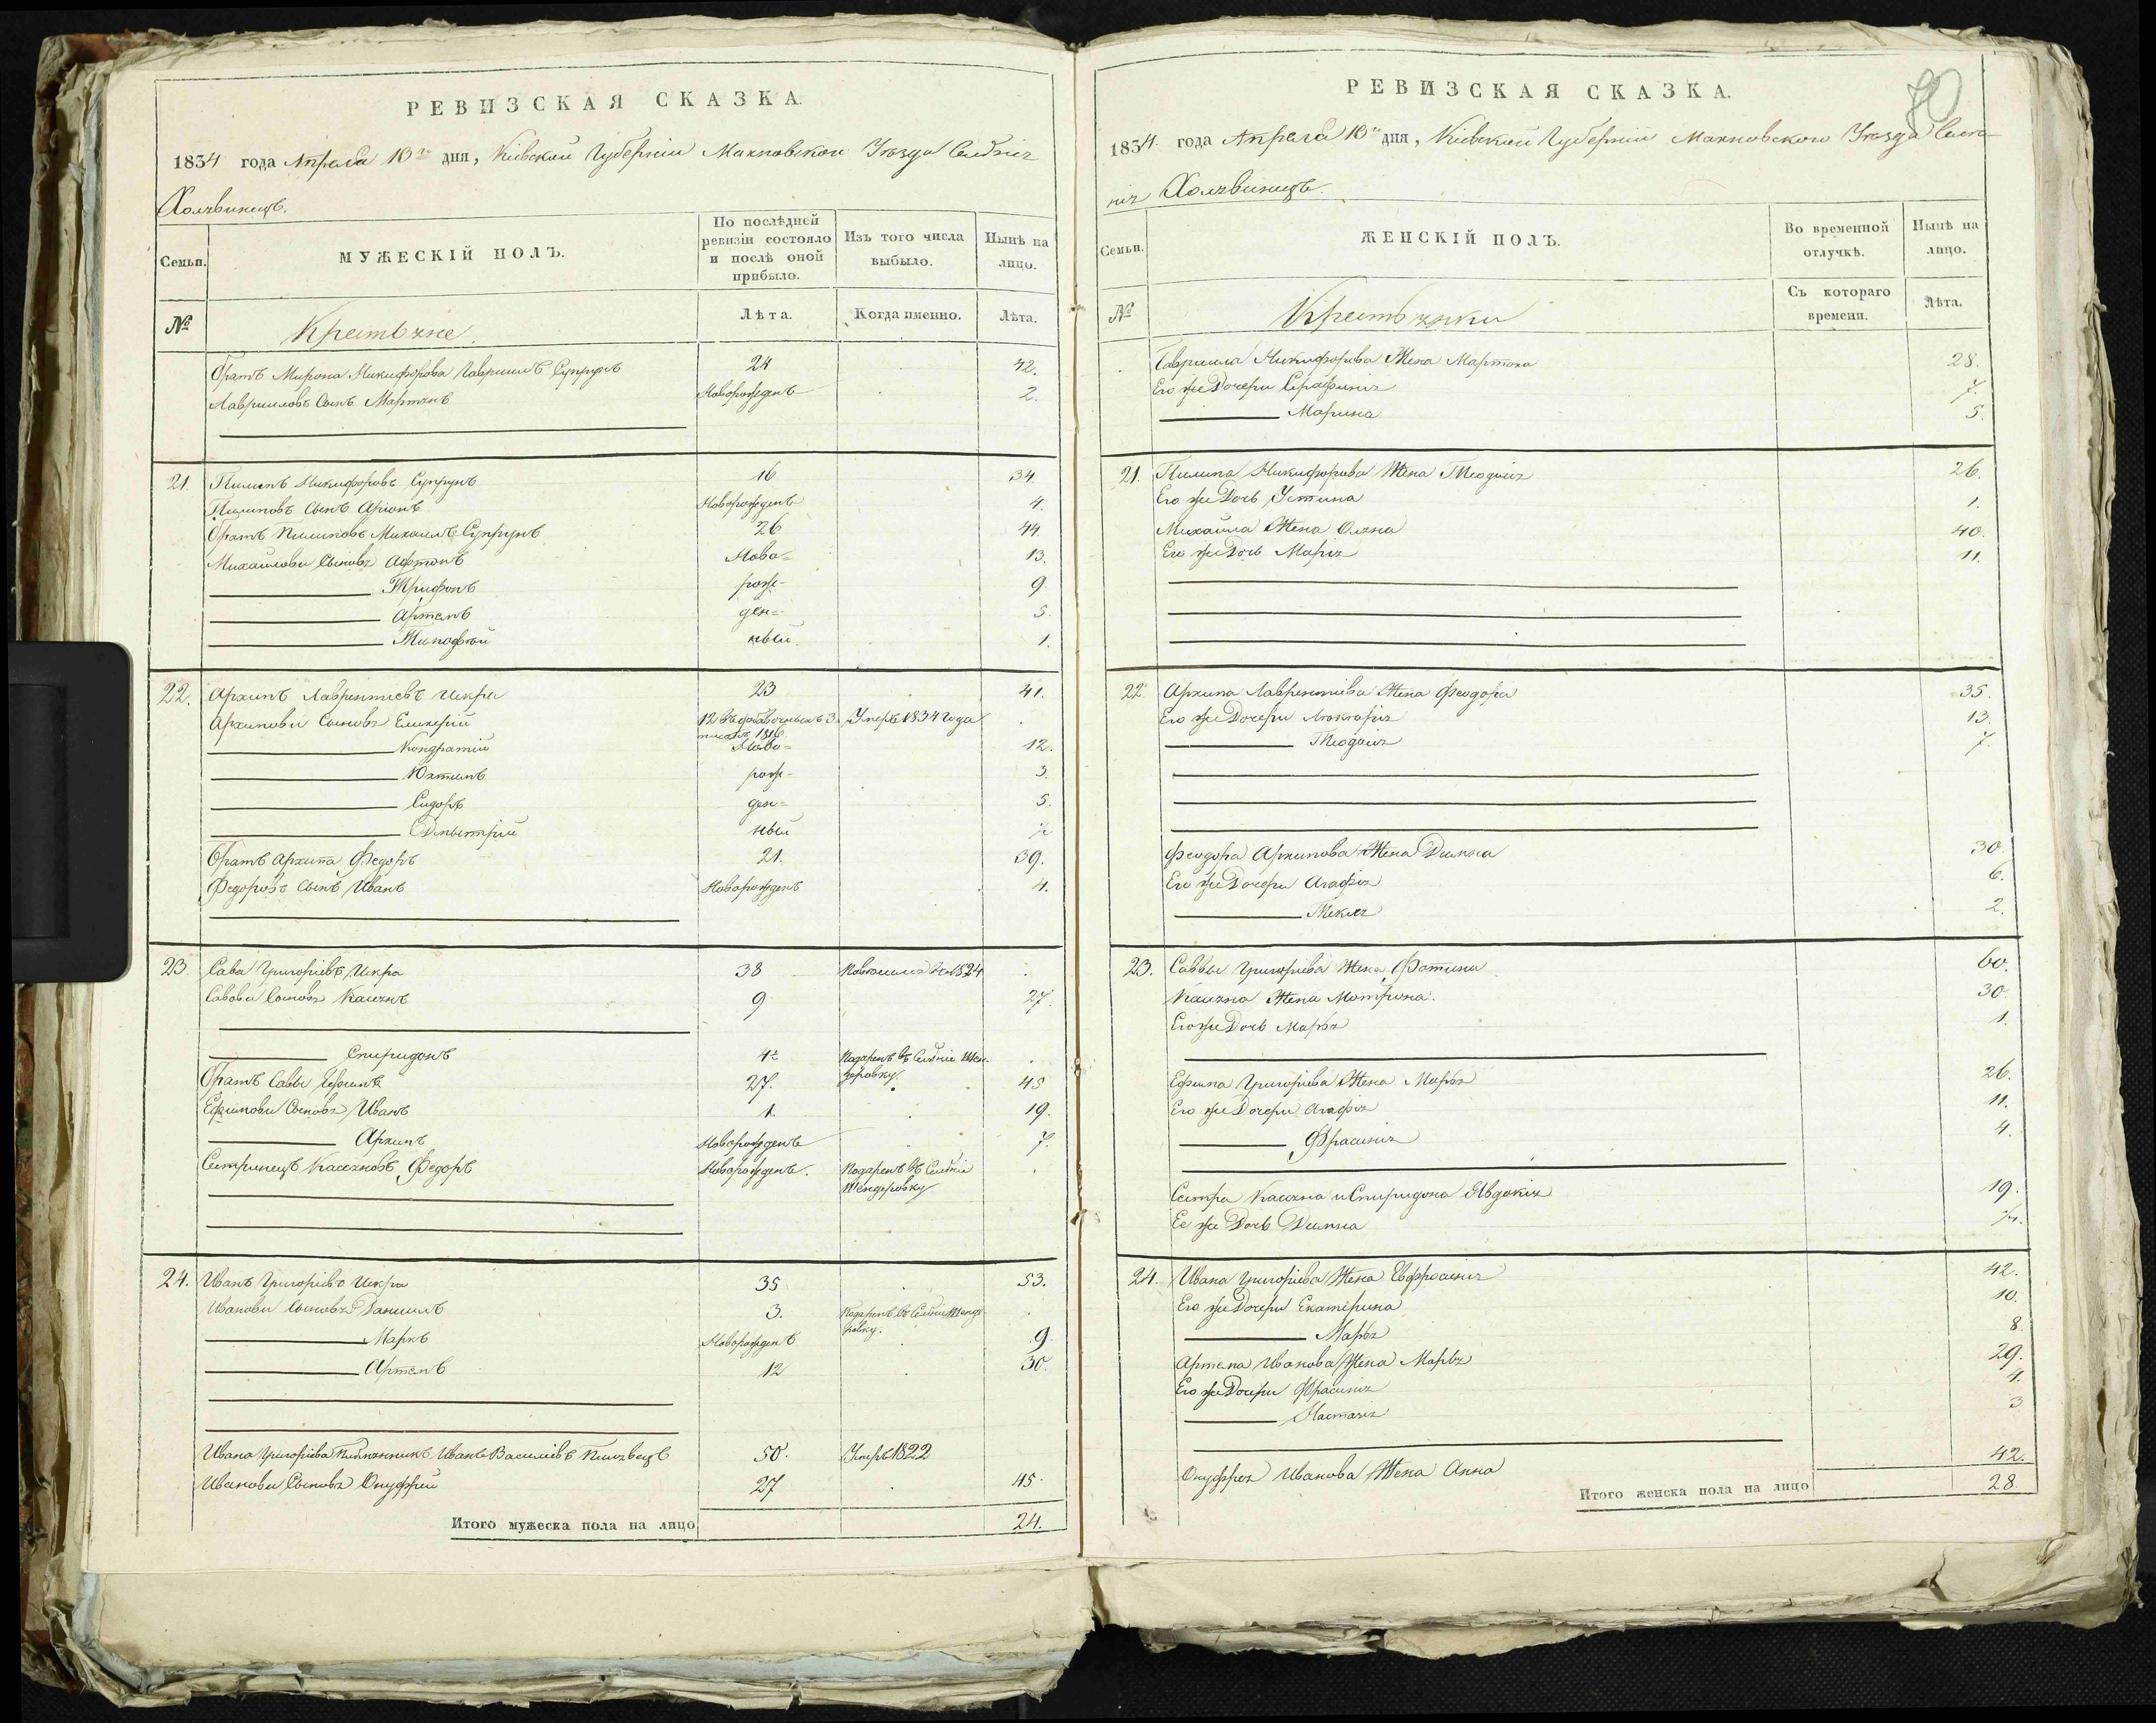 РЕВИЗСКАЯ СКАЗКА.
1834 года Апреля 10го дня, Кіевской Губерніи Махновского Уезда Селенія
Холявинецъ.
Семьи. МУЖЕСКІЙ ПОЛЪ. По послѣдней ревизіи состояло и послѣ оной прибыло. Изъ того числа выбыло. Нынѣ на лицо.
№ Крестьяне. Лѣта. Когда именно. Лѣта.
Братъ Мирона Никифорова Гавриилъ Супрунъ 24 42.
Гаврииловъ Сынъ Мартынъ Новорожденъ 2.
21. Пилипъ Никифоровъ Супрунъ 16 34.
Пилиповъ Сынъ Аріонъ Новорожденъ 4.
Братъ Пилиповъ Михаилъ Супрунъ 26 44.
Михайлови Сыновя Афтонъ Ново- 13.
Трифонъ рож- 9.
Артемъ ден- 5.
Тимофей ный 1.
22. Архипъ Лаврентіевъ Искра 23 41.
Архипови Сыновя Еликерій 12 Умеръ 1834 года
1816
Кондратій Ново- 12.
Юхтимъ рож- 3.
Сидоръ ден- 5.
Дмытрій ный ½
Братъ Архипа Федоръ 21. 39.
Федоровъ Сынъ Иванъ Новорожденъ 4.
23. Сава Григоріевъ Искра 38 1824
Савови Сыновя Касянъ 9 27.
Спиридонъ 4½ Подаренъ въ Селеніе Шен-
деровку.
Братъ Саввы Ефимъ 27. 45
Ефимови Сыновя Иванъ 1. 19.
Архипъ Новорожденъ 7.
Сестринецъ Касяновъ Федоръ Новорожденъ. Подаренъ въ Селеніе
Шендеровку
24. Иванъ Григоріевъ Искра 35 53.
Иванови Сыновя Даниилъ 3. Подаренъ въ Селеніе Шенде-
ровку.
Маркъ Новорожденъ 9
Артемъ 12 30.
Ивана Григоріева Племянникъ Иванъ Василіевъ 50. Умеръ 1822
Иванови Сыновя Онуфрій 27 45.
Итого мужеска пола на лицо 24.
70
РЕВИЗСКАЯ СКАЗКА.
1834. года Апреля 10го дня, Кіевской Губерніи Махновского Уезда Селе-
нія Холявинецъ.
Семьи. ЖЕНСКІЙ ПОЛЪ. Во временной отлучкѣ. Нынѣ на лицо.
№ Крестьянки Съ котораго времени. Лѣта.
Гавриила Никифорова Жена Мартоха 28.
Его же Дочери Серафинія 7.
Марина 5.
21. Пилипа Никифорова Жена Теодосія 26.
Его же Дочь Устина 1.
Михайла Жена Оляна 40.
Его же Дочь Марія 11.
22. Архипа Лаврентіева Жена Феодора 35.
Его же Дочери Люкарія 13.
Теодосія 7.
Феодора Архипова Жена Димна 30.
Его же Дочери Агафія 6.
Текля 2.
23. Саввы Григоріева Жена Фотина 60.
Касяна Жена Мотрона. 30.
Его же Дочь Марья 1.
Ефима Григоріева Жена Марья 26.
Его же Дочери Агафія 11.
Фрасинія 4.
Сестра Касяна и Спиридона Явдокія 19.
Ее же Дочь Димна
24. Ивана Григоріева Жена Евфросинія 42.
Его же Дочери Екатерина 10.
Марья 8.
Артема Иванова Жена Марья 29.
Его же Дочери Фрасинія 4.
Настазія 3
Онуфрія Иванова Жена Анна 42.
Итого женска пола на лицо 28.